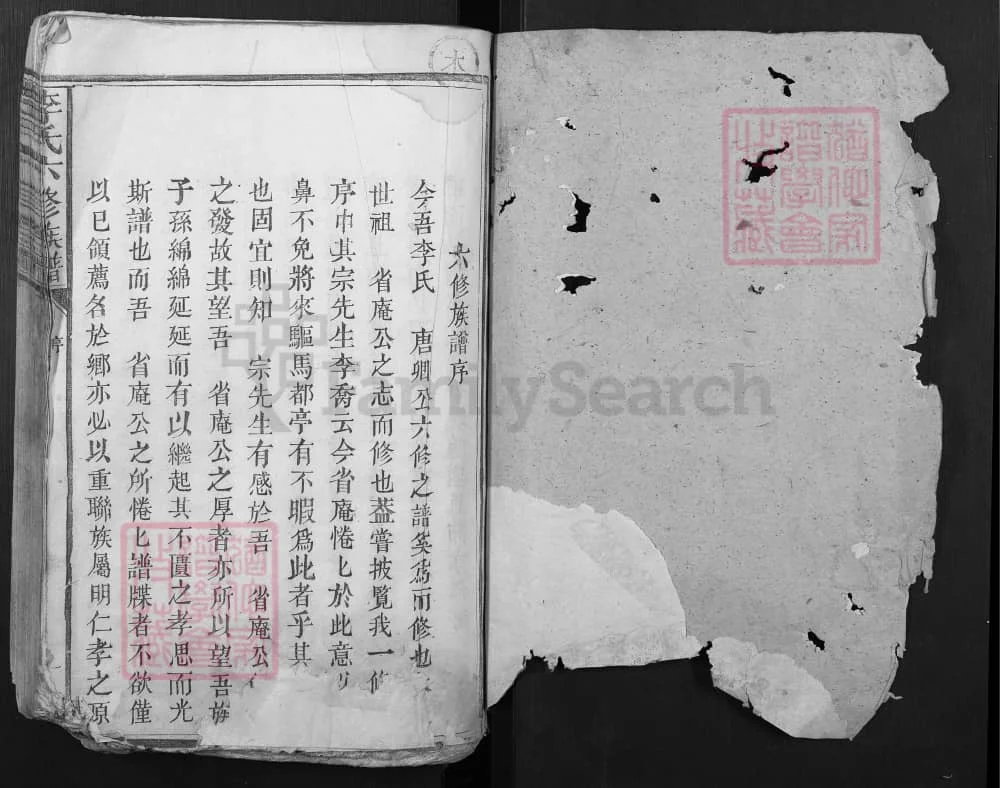 木
六修族譜序
今吾李氏　唐卿公六修之譜奚爲而修也
世祖　省庵公之志而修也葢嘗披覽我一修
序中其宗先生李喬云今省庵惓匕於此意
鼻不免將來驅馬都亭有不暇爲此者乎其
也固宜則知　宗先生有感於吾　省庵公
之發故其望吾　省庵公之厚者亦所以望吾族
子孫綿綿延延而有以繼起其不匱之孝思而光
斯譜也而吾　省庵公之所惓匕譜牒者不欲僅
以已領薦名於鄉亦必以重聯族屬明仁孝之原
李氏六修族譜
序
譜學會
FamilySearch